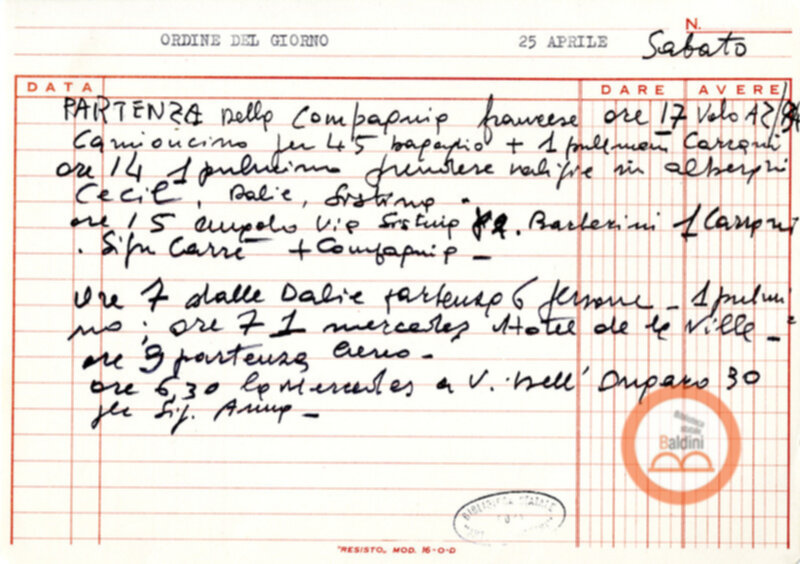 N.
ORDINE DEL GIORNO 25 APRILE Sabato
DATA DARE AVERE
PARTENZA della Compagnia francese ore 17 Volo AZ/
Camioncino per 45 bagaglio + 1 pullman Carrani
ore 14 1 pulmino prendere valigie in alberghi
Cecil, Dalie, Sistina.
ore 15 angolo Via Sistina Barberini 1 Carrani
. Sign Carrè + Compagnia _
Ore 7 dalle Dalie partenza 6 persone _ 1 pulmi
no ; ore 7 1 mercedes Hotel de la Ville _
ore 9 partenza Aereo _
ore 6,30 la Mercedes a V. Dell' Ongaro 30
per Sig. Anna _
Biblioteca
statale
Baldini
BIBLIOTECA STATALE
"RESISTO" MOD. 16-O-D